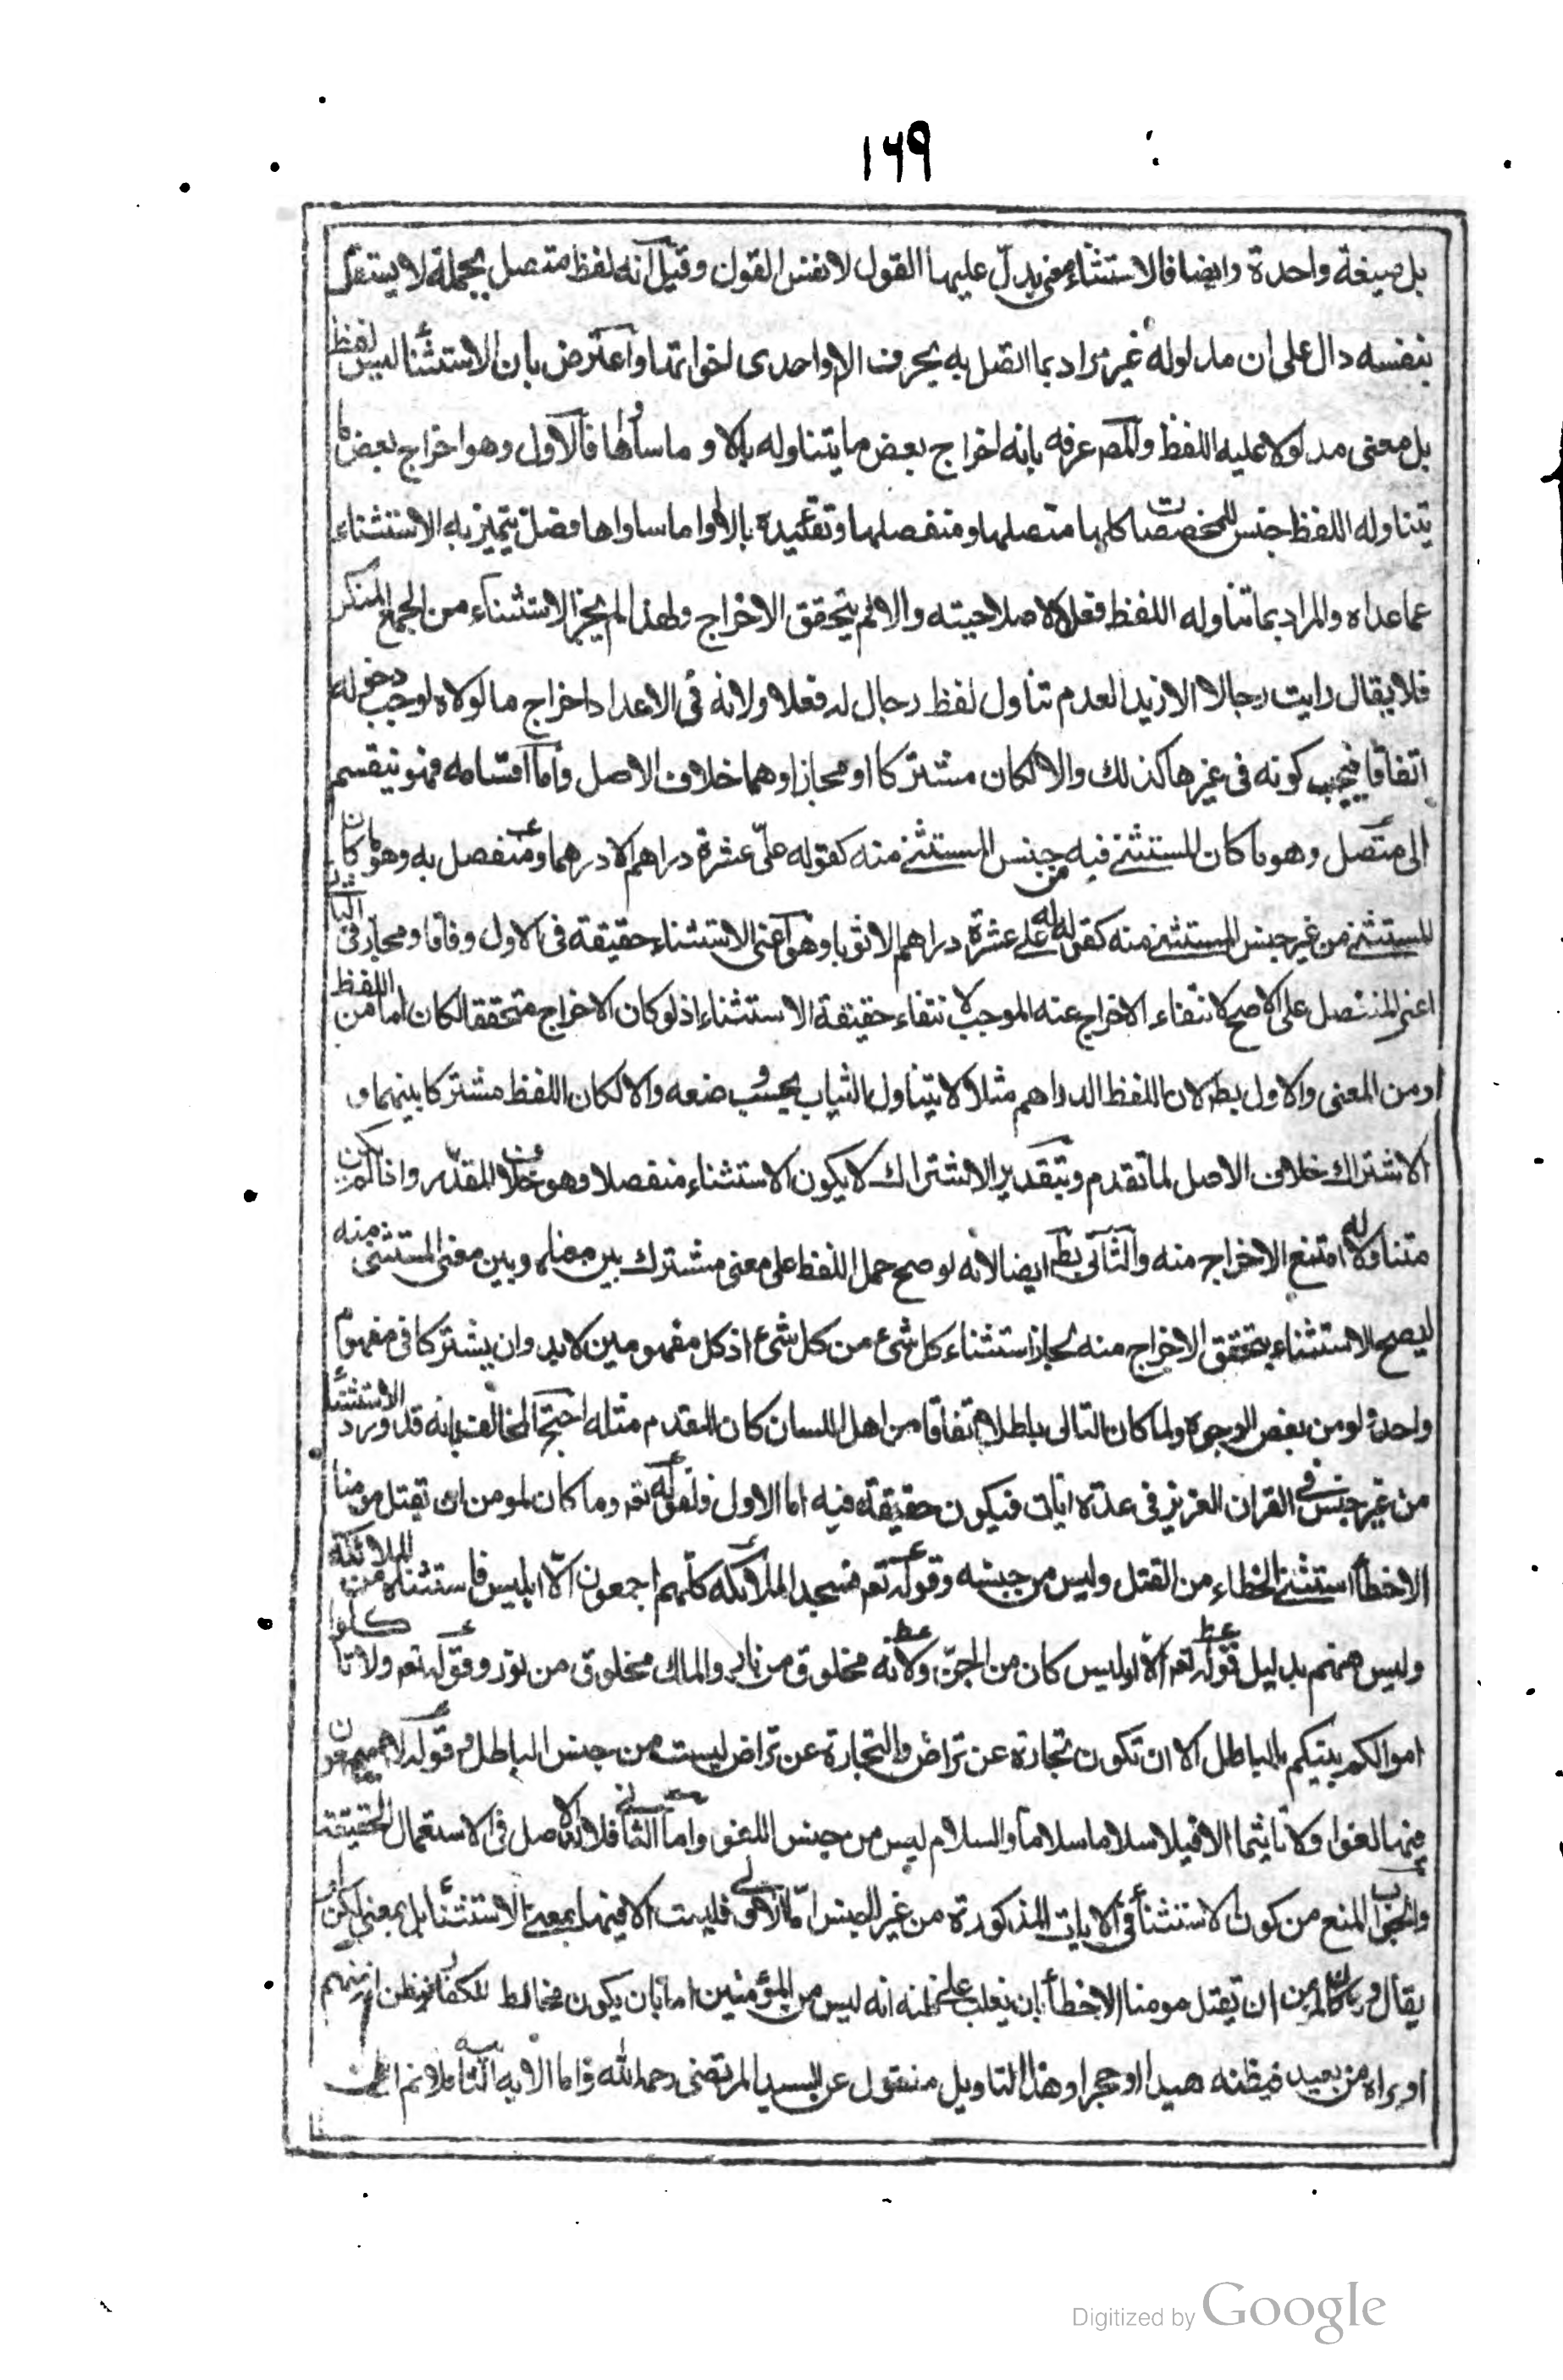 ١٦٩
بل صيغة واحدة وايضا فالاستثناء معنى يدلّ عليها القول لا نفس القول وقيل انه لفظ متصل بجملة لا يستقل
بنفسه دال على ان مدلوله غير مراد بما اتصل به بحرف الا او احدى اخواتها واعترض بان الاستثناء ليس لفظ
بل معنى مدلولا عليه اللفظ والمصـ عرفه بانه اخراج بعض ما يتناوله بالا و ما ساواها فالاول وهو اخراج بعض ما
يتناوله اللفظ جنس للمخصصات كلها متصلها ومنفصلها وتقييده بالا او ما ساواها فصل يتميز به الاستثناء
عما عداه والمراد بما تناوله اللفظ فعلا لا صلاحيته والا لم يتحقق الاخراج ولهذا لم يجز الاستثناء من الجمع المنكر
فلا يقال رايت رجالا الا زيدا لعدم تناول لفظ رجال له فعلا ولانه في الاعداد اخراج ما لولاه لوجب دخوله
اتفاقا فيجب كونه في غيرها كذلك والا لكان مشتركا او مجازا وهما خلاف الاصل واما اقسامه فهو ينقسم
الى متصل وهو ما كان المستثنى فيه من جنس المستثنى منه كقوله علىّ عشرة دراهم الا درهما ومنفصل به وهو ما كان
المستثنى من غير جنس المستثنى منه كقوله له علي عشرة دراهم الا ثوبا وهو اعنى الاستثناء حقيقة في الاول وفاقا ومجاز في الثاني
اعنى المنفصل على الاصح لانتفاء الاخراج عنه الموجب لانتفاء حقيقة الاستثناء اذ لو كان الاخراج متحققا لكان اما من اللفظ
او من المعنى والاول بط لان اللفظ الدراهم مثلا لا يتناول الثياب بحسب وضعه والا لكان اللفظ مشتركا بينهما و
الاشتراك خلاف الاصل لما تقدم وبتقدير الاشتراك لا يكون الاستثناء منفصلا وهو خلاف المقدّر واذا لم يكن
متناولا له امتنع الاخراج منه والثاني بط ايضا لانه لو صح حمل اللفظ على معنى مشترك بين معناه وبين معنى المستثنى منه
ليصح الاستثناء بتحقق الاخراج منه لجاز استثناء كل شيء من كل شيء اذ كل مفهومين لابد وان يشتركا في مفهوم
واحد ولو من بعض الوجوه ولما كان التالى باطلا اتفاقا من اهل اللسان كان المقدم مثله احتج المخالف بانه قد ورد الاستثناء
من غير جنس في القران العزيز في عدّة ايات فيكون حقيقة فيه اما الاول فلقوله تعـ وما كان لمومن ان يقتل مومنا
الا خطأ استثنى الخطاء من القتل وليس من جنسه وقوله تعـ فسجد الملائكة كلّهم اجمعون الّا ابليس فاستثناه من الملائكة
وليس منهم بدليل قوله تعـ الّا ابليس كان من الجنّ ولانه مخلوق من نار والملك مخلوق من نور وقوله تعـ ولا تاكلوا
اموالكم بينكم بالباطل الا ان تكون تجارة عن تراض والتجارة عن تراض ليست من جنس الباطل وقوله لا يسمعون
فيها لغوا ولا تاثيما الا قيلا سلاما سلاما والسلام ليس من جنس اللغو واما الثاني فلان الاصل في الاستعمال الحقيقة
والجواب المنع من كون الاستثناء في الايات المذكورة من غير الجنس امّا الاولى فليست الا فيها بمعنى الاستثناء بل بمعنى لكن او
يقال وما كان لمومن ان يقتل مومنا الا خطأ بان يغلب على ظنه انه ليس من المؤمنين اما بان يكون مخالط للكفار فيظن انه منهم
او يراه من بعيد فيظنه صيدا او حجرا وهذا التاويل منقول عن السيد المرتضى رحمه الله واما الاية الثانية فلا نم
Digitized by Google